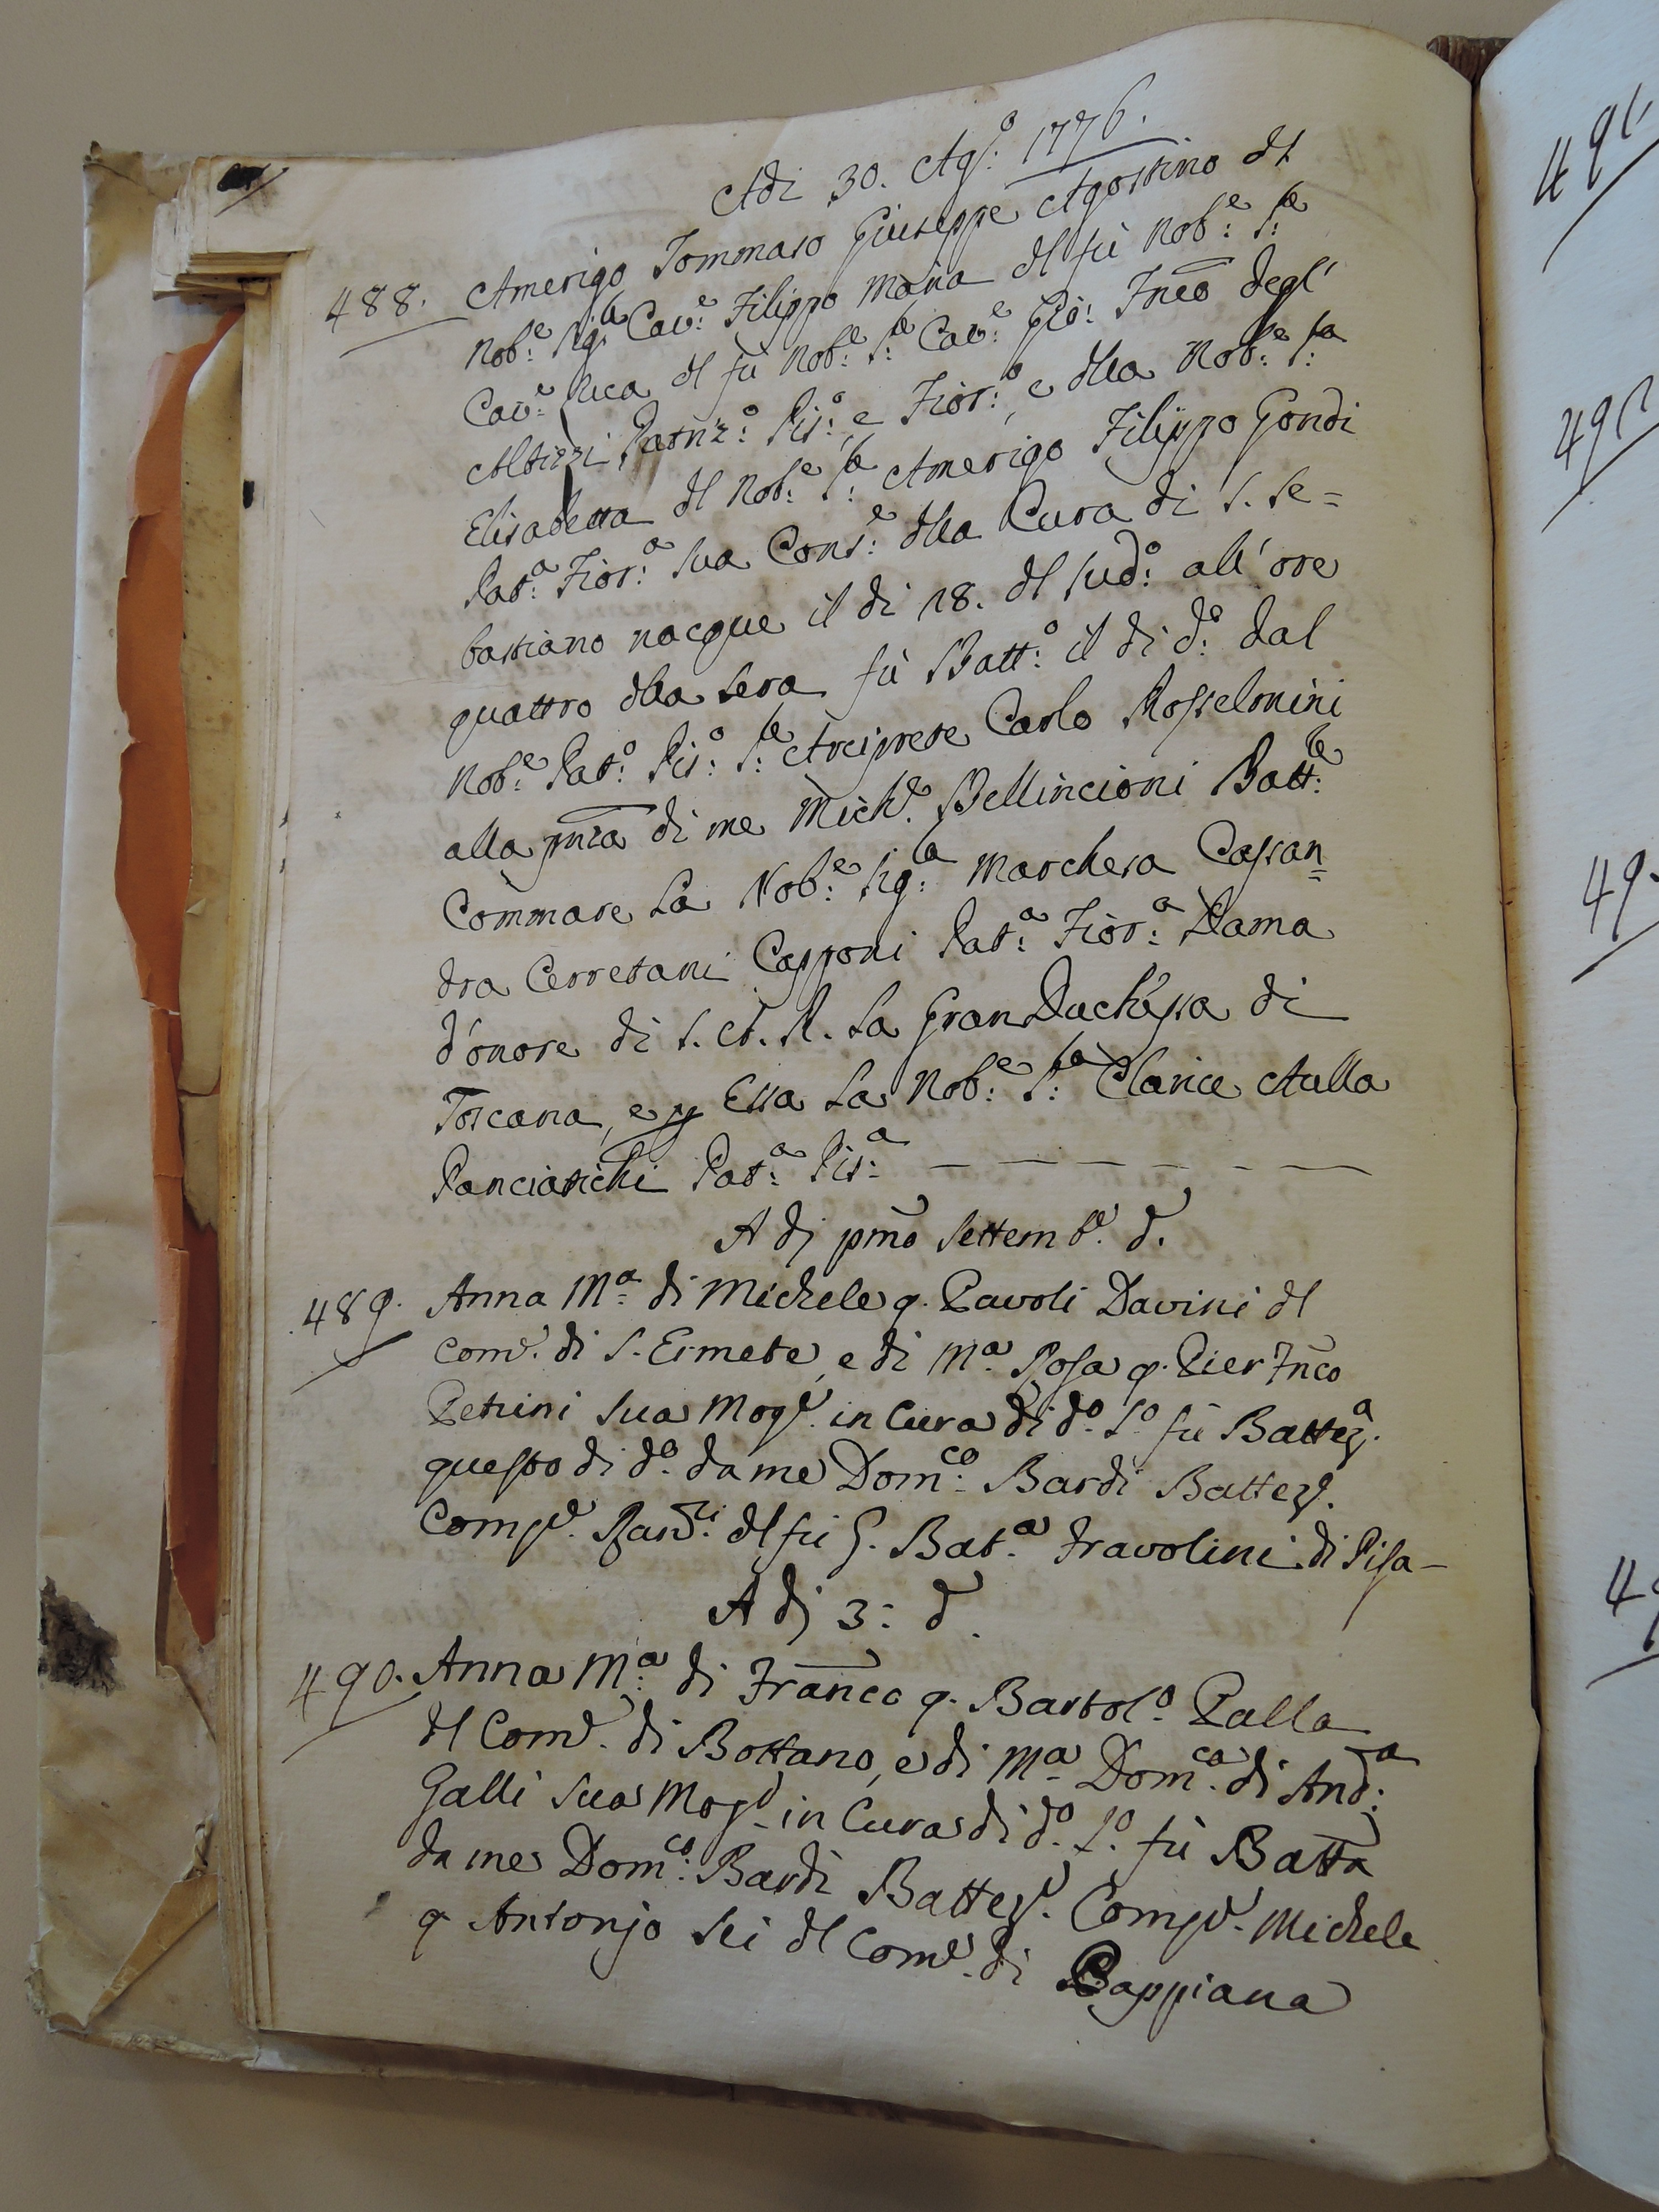 Adi 30. Ag:o 1776.
488. Amerigo Tommaso Giuseppe Agostino dl
Nob:e Sig:re Cav:e Filippo Maria dl fù Nob:e S:re
Cav:e Luca dl fù Nob:e S:re Cav:e Gio: Fnco degl'
Patriz:o Pis:o, e Fior:o, e dlla Nob:e S:ra
Elisabetta dl Nob:e S:re Amerigo Filippo Gondi
Pat:a Fior:a sua Cons:e dlla Cura di S. Se=
bastiano nacque il di 28. dl sud:o all'ore
quattro dlla sera fù Batt:o il di d:o dal
Nob:e Pat:o Pis:o S:re Arciprete Carlo Rosselmini
alla pnza di me Mich:e Bellincioni Batt:re
Commare La Nob:e Sig:ra Marchesa Cassan=
dra Cerretani Capponi Pat:a Fior:a Dama
d'onore di S. A. R. La GranDuchessa di
Toscana, e p Essa La Nob:e S:ra Clarice Aulla
Panciatichi Pat:a Pis:a — — — — — —
A dj pmo Settembe. d.
489. Anna Ma: di Michele q. Pavolo Davini dl
Come. di S. Ermete, e di Ma. Rosa q. Pier Fnco
Petrini sua Moge. in Cura di do. Lo. fù Battez.a
questo di do. da me Dom:co Bardi Batteze.
Compe. dl fù G. Bat.a Travolini di Pisa —
A dj 3: d.
490. Anna Ma: di Franco q. Bartolo. Palla
dl Come. di Bottano, e di Ma. Dom:ca di And:a
Galli sua Moge. in Cura di do. Lo. fù Batta
da me Dom:co Bardi Batteze. Compe. Michele
q Antonjo Sei dl Come. di Pappiana
491
491
49
49